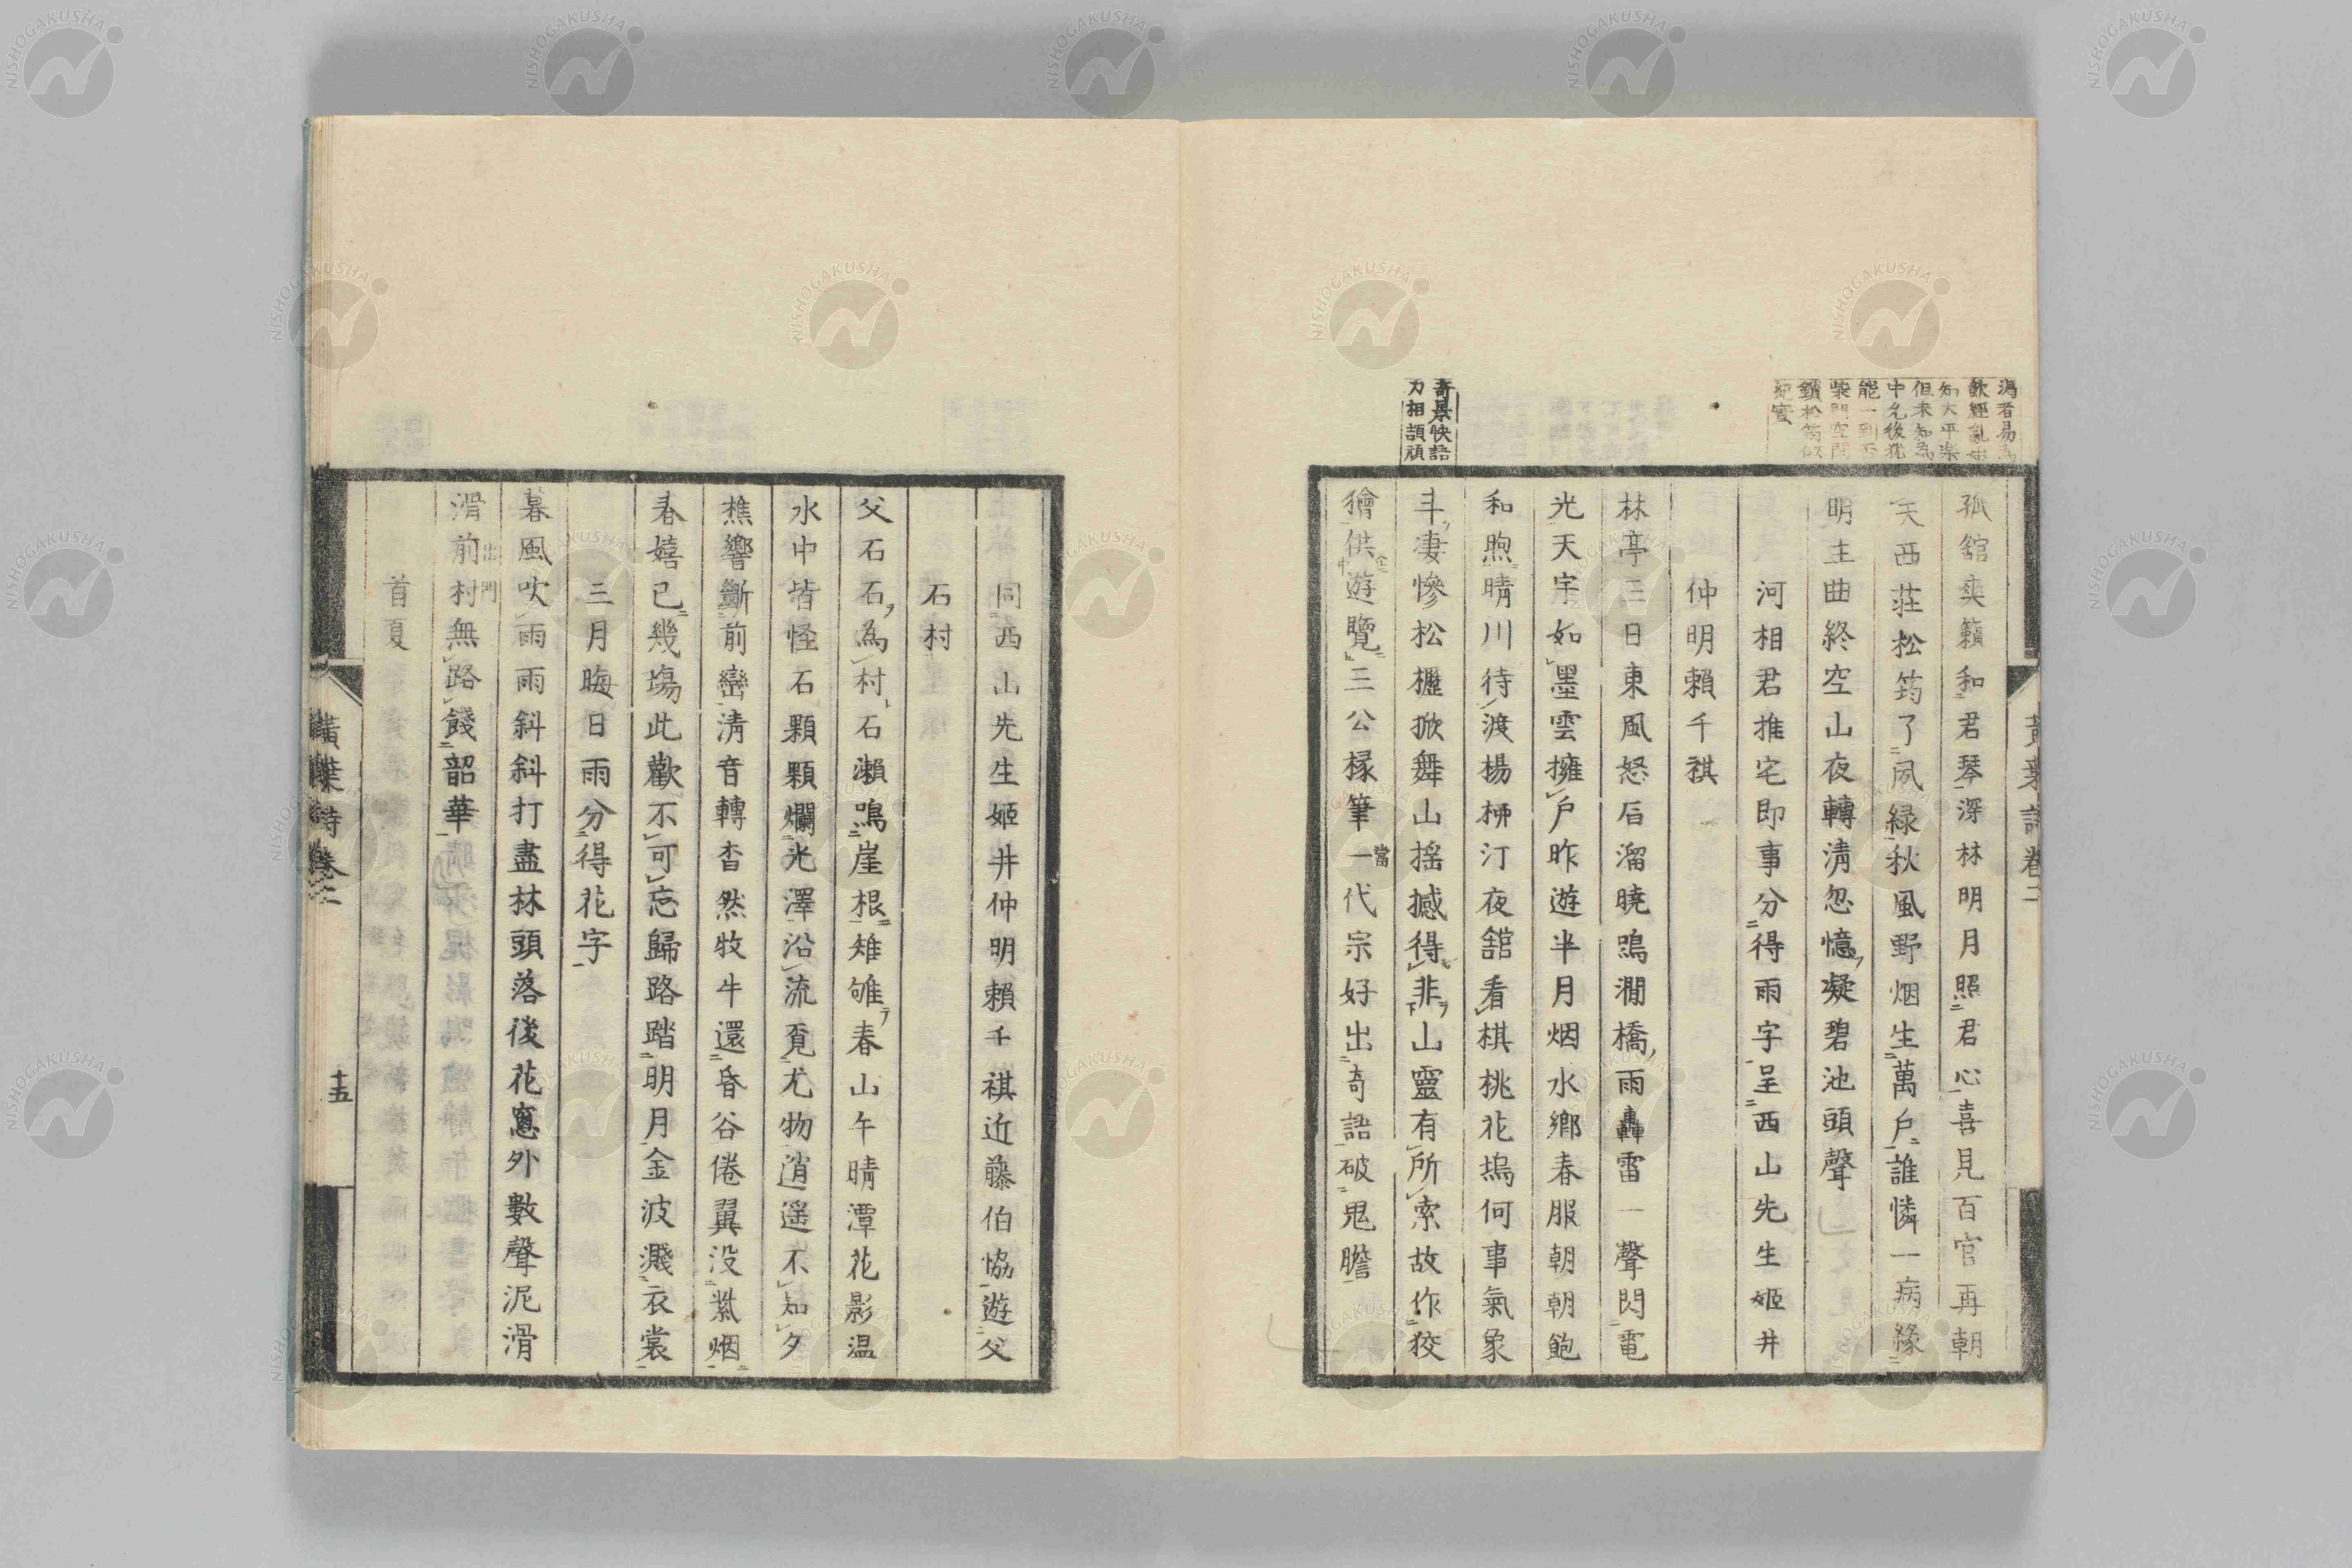 渇者易為
飲經亂始
知大平楽
但未知為
中允後猶
能一到不
柴門空閉
鎖松筠似
紀實
孤舘奕籟和君琴深林明月照君心喜見百官再朝
天西荘松筠了夙緑秋風野烟生萬戸誰憐一病緣
明主曲終空山夜轉淸忽憶凝碧池頭聲
河相君推宅即事分得雨字呈西山先生姬井
仲明賴千祺
林亭三日東風怒后溜曉鳴澗橋雨轟雷一聲閃電
光天宇如墨雲擁戸昨遊半月烟水鄉春服朝朝飽
和煦晴川待渡楊栁汀夜舘看棋桃花塢何事氣象
奇景快語
力相頡頏
斗凄慘松櫪掀舞山揺撼得非山靈有所索故作狡
獪供遊覽三公椽筆一代宗好出奇語破鬼膽
仝
中
當
黃葉詩卷二
同西山先生姬井仲明賴千祺近藤伯恊遊父
石村
父石石為村石瀨鳴崖根雉雊春山午晴潭花影温
水中皆怪石顆顆爛光澤沿流覔尤物逍遥不知夕
樵響斷前巒淸音轉杳然牧牛還昏谷倦翼没紫烟
春嬉已幾塲此歡不可忘歸路踏明月金波濺衣裳
三月晦日雨分得花字
暮風吹雨雨斜斜打盡林頭落後花窻外數聲泥滑
滑前村無路餞韶華
出門
首夏
黃葉詩卷二
十五
NISHOGAKUSHA